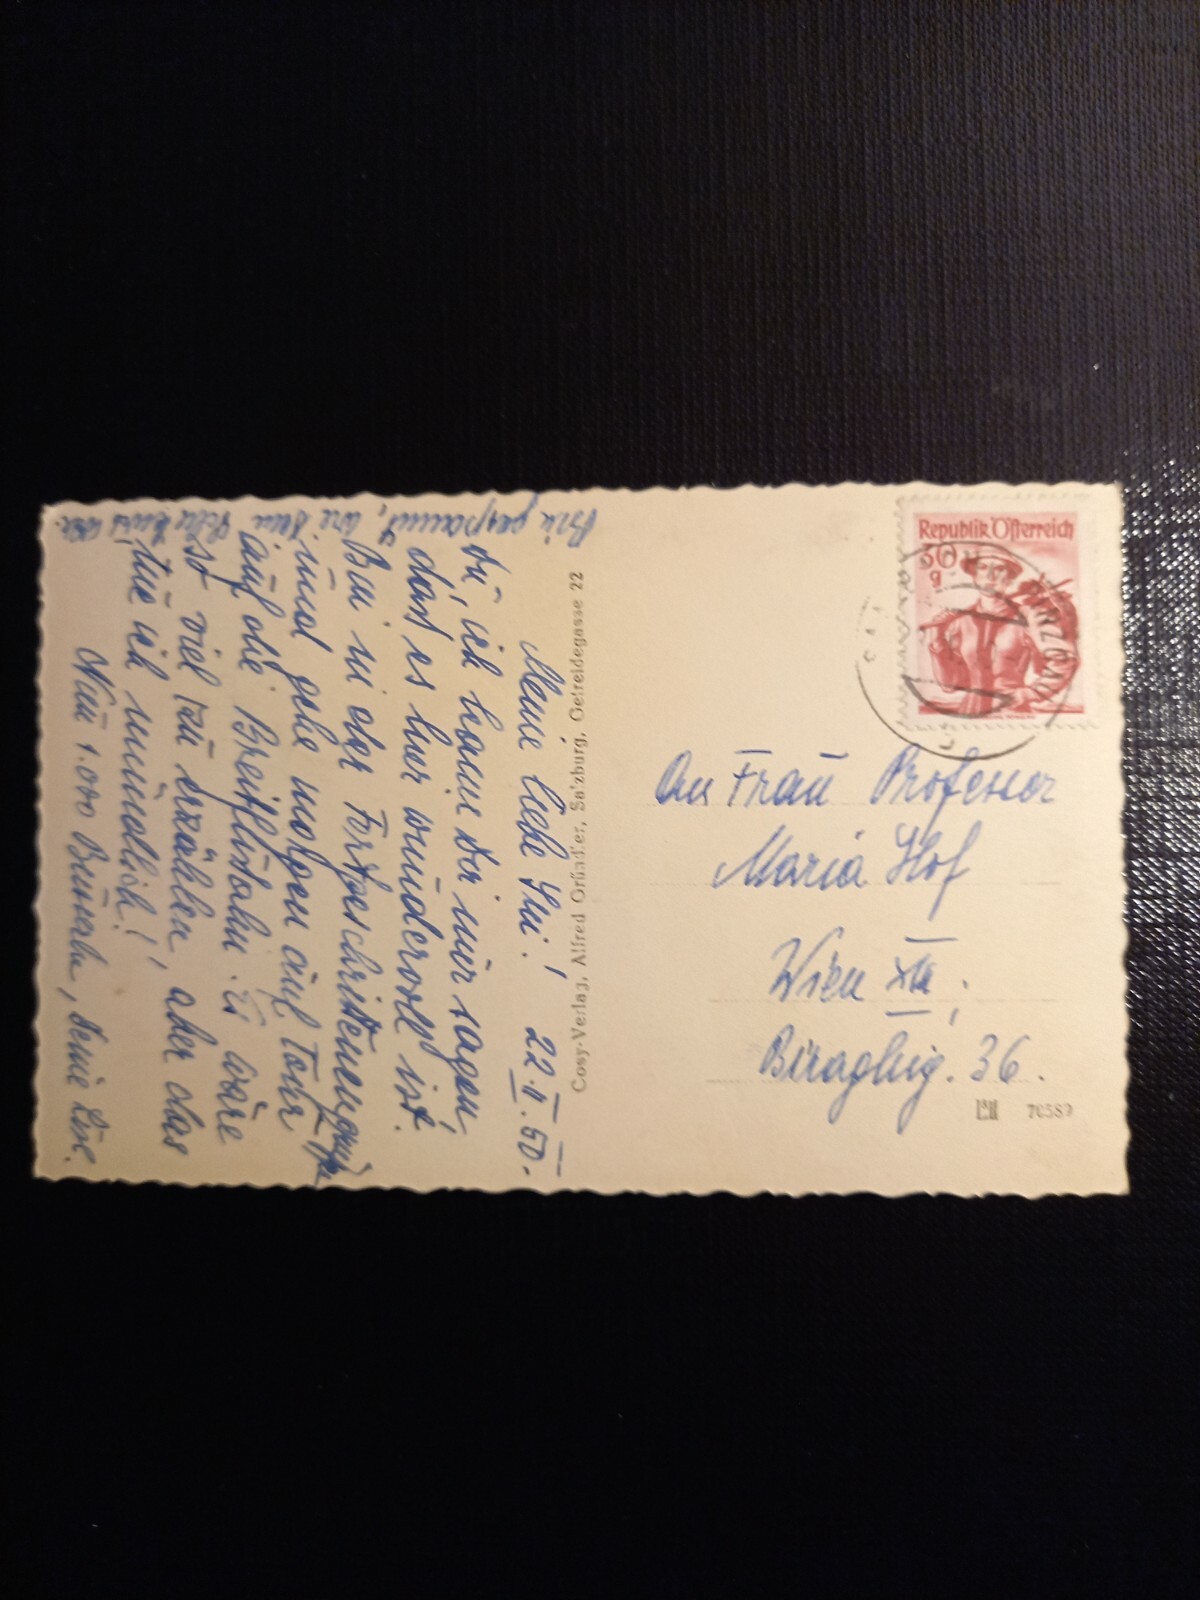 Meine liebe
22.II.50.
Du, ich kann Dir nur sagen,
dass es hier wundervoll ist.
Bin in der Fortgeschrittenengruppe
und gehe morgen auf Tour
auf die Breitlistalm. Es wäre
so viel zu erzählen, aber das
tue ich mündlich!
Nun 1.000 Busserln, Deine Lise.
Bin gespannt, wie Dein
Cosy-Verlag, Alfred Gründler, Salzburg, Getreidegasse 22
Republik Österreich
30
g
An Frau Professor
Maria Hof
Wien
36.
70589